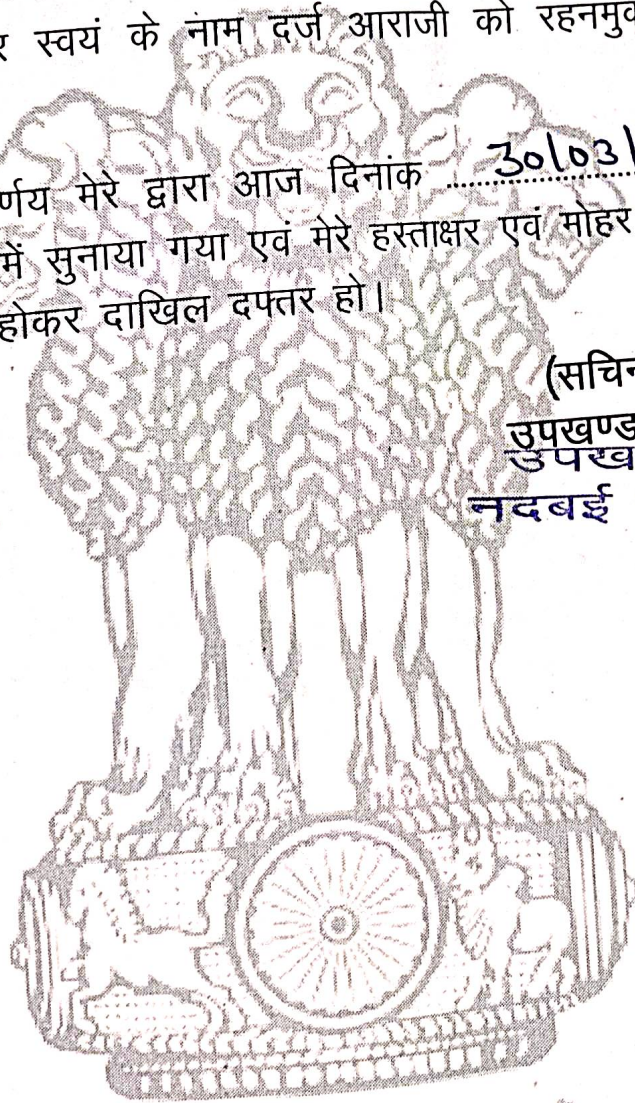 र स्वयं के नाम दर्ज आराजी को रहनमुक
र्णय मेरे द्वारा आज दिनांक 30/03/
में सुनाया गया एवं मेरे हस्ताक्षर एवं मोहर
होकर दाखिल दफ्तर हो।
(सचिन
उपखण्ड
उपख
नदबई